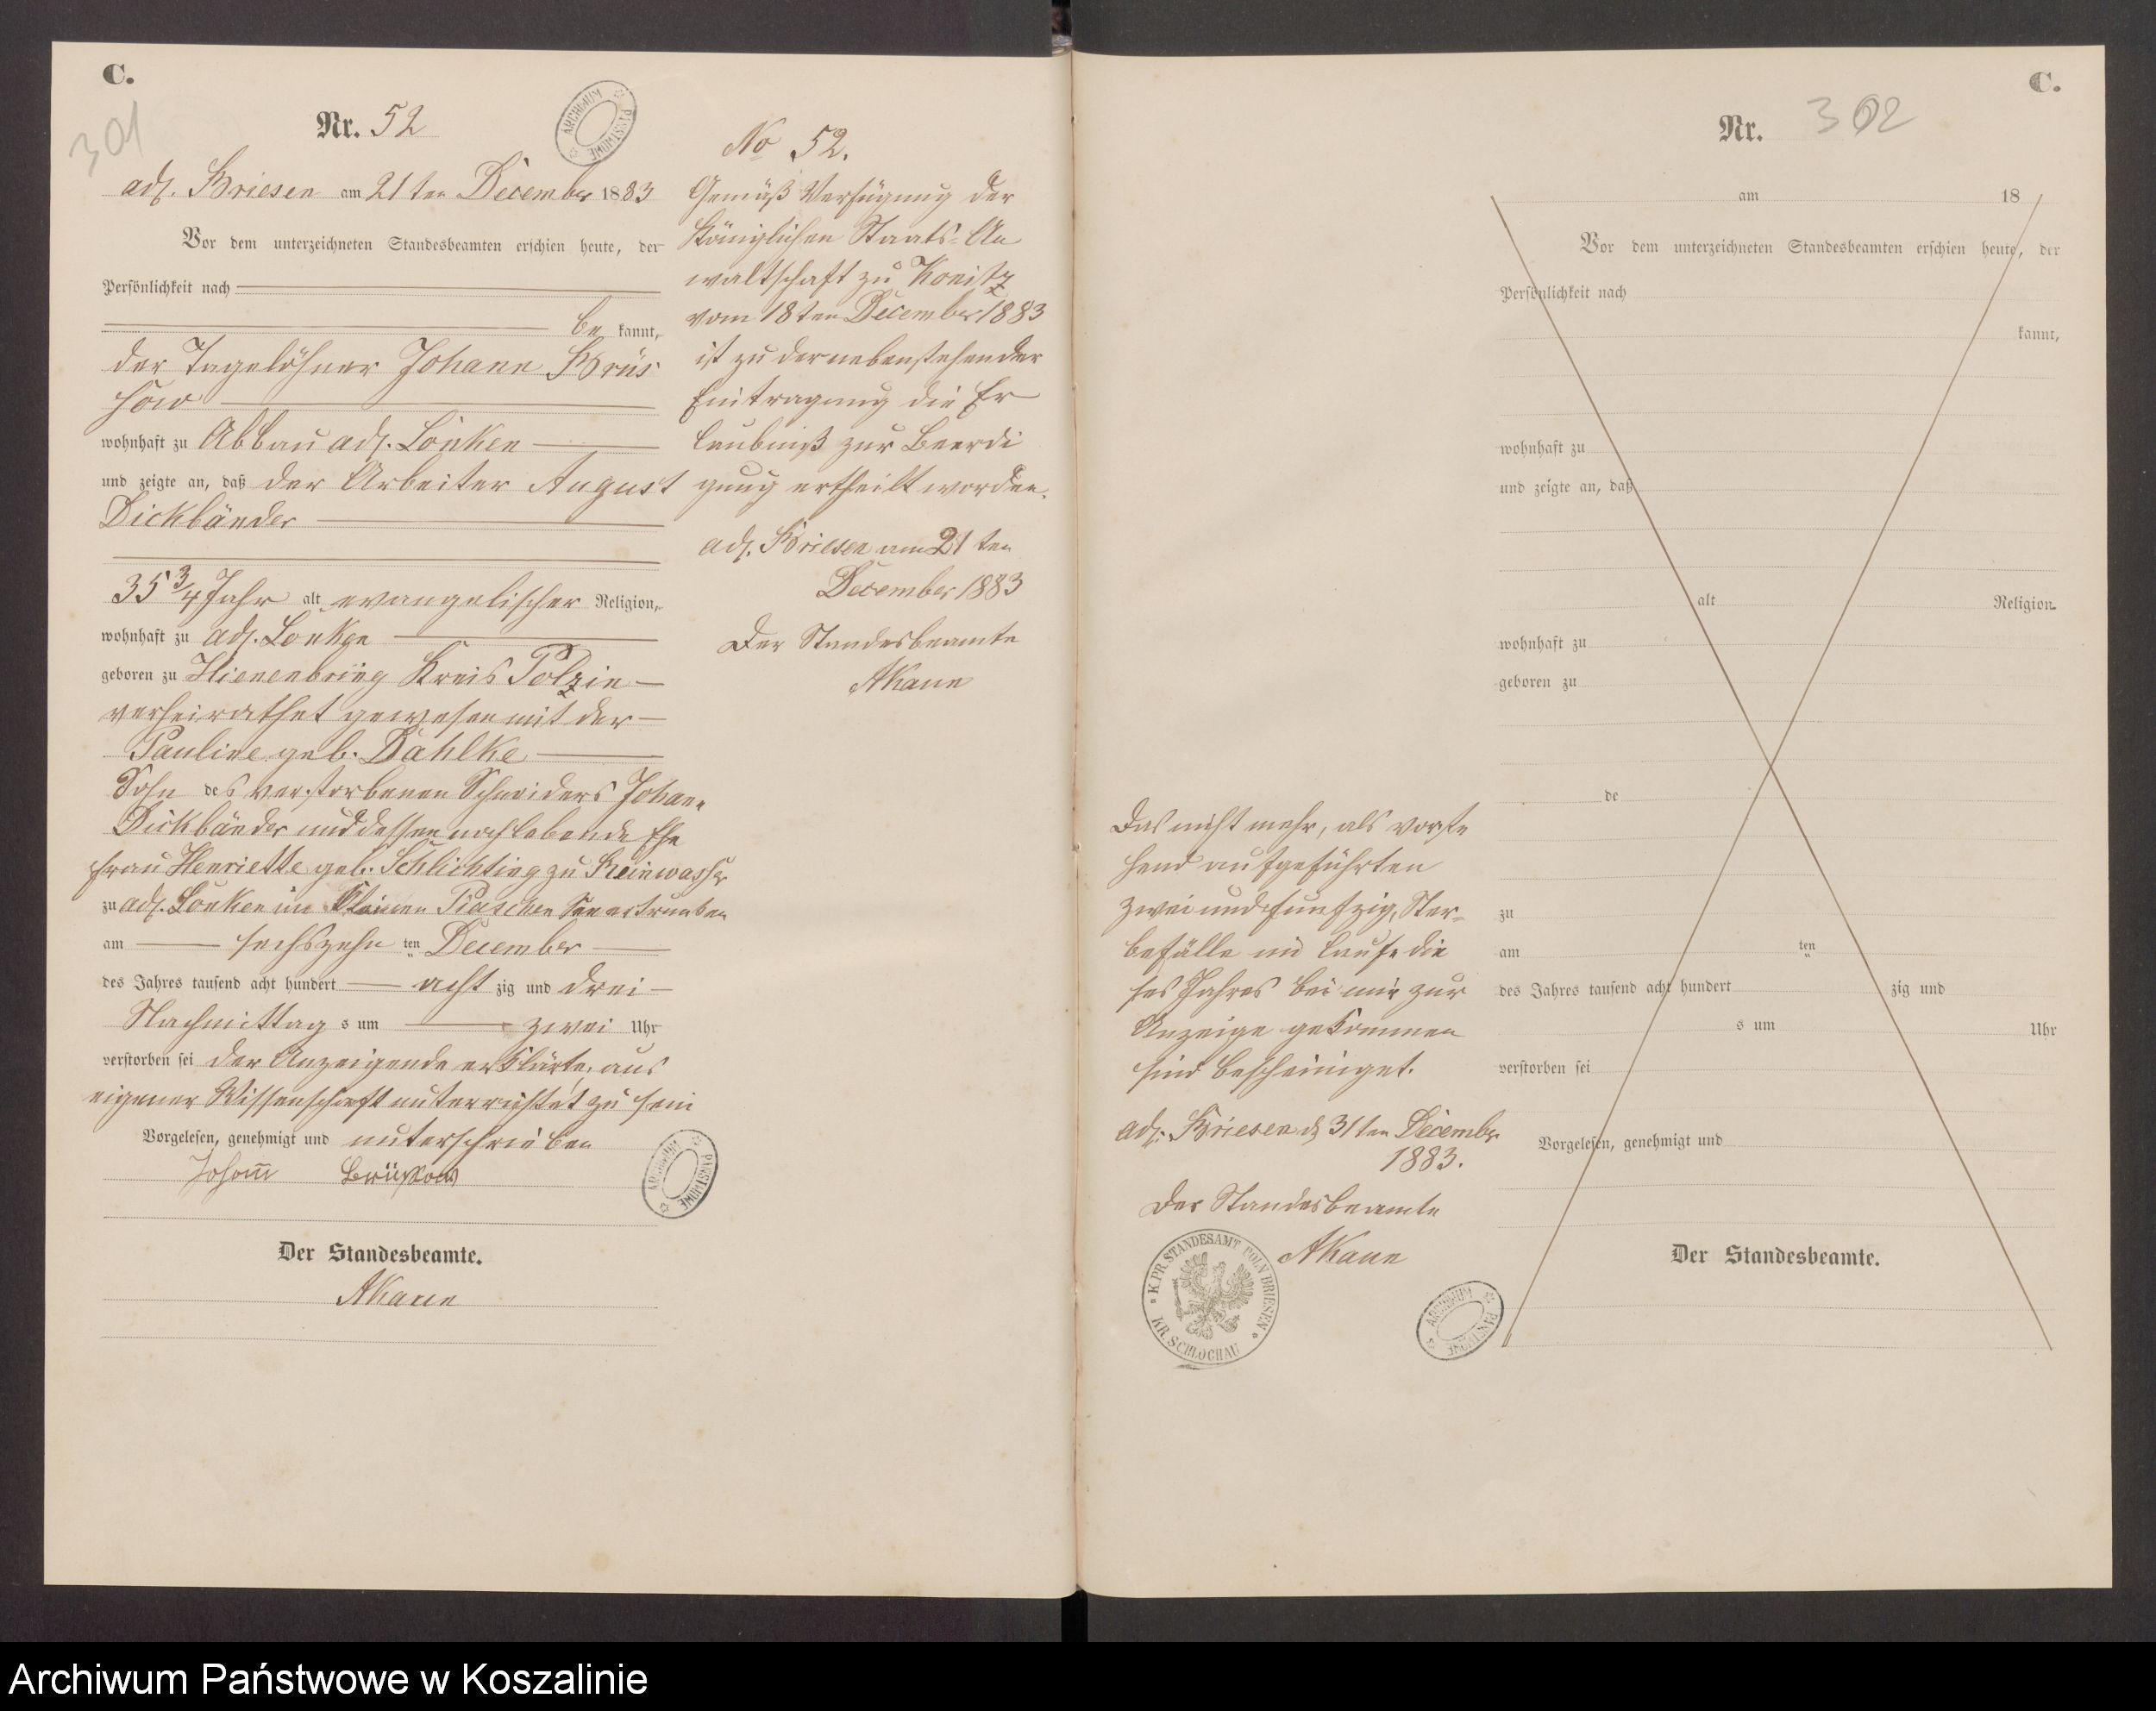 C.
301
Nr. 52
adl. Briesen am 21ten December 1883
Vor dem unterzeichneten Standesbeamten erschien heute, der
Persönlichkeit nach
be kannt,
der Tagelöhner Johann Brüs
sow
wohnhaft zu Abbau adl. Lonken
und zeigte an, daß der Arbeiter August
Dickbänder
35 3/4 Jahr alt evangelischer Religion,
wohnhaft zu adl. Lonken
geboren zu Kreis Polzin
verheirathet gewesen mit der
Pauline geb. Dahlke
Sohn des verstorbenen Schneiders Johann
Dickbänder und dessen noch lebende Ehe
frau Henriette geb. Schlichting zu Reinwasser
zu adl. Lonken im Kleinen
am sechszehn ten December
des Jahres tausend acht hundert acht zig und drei
Nachmittag s um zwei Uhr
verstorben sei der Anzeigende erklärte, aus
eigener Wissenschaft unterrichtet zu sein
Vorgelesen, genehmigt und unterschrieben
Johann Brüssow
Der Standesbeamte.
AKaun
ARCHIWUM PAŃSTWOWE
No 52.
Gemäß Verfügung der
Königlichen Staats-An
waltschaft zu Konitz
vom 18ten December 1883
ist zu der nebenstehender
Eintragung die Er
laubniß zur Beerdi
gung ertheilt worden.
adl. Briesen am 21ten
December 1883
Der Standesbeamte
AKaun
ARCHIWUM PAŃSTWOWE
Das nicht mehr, als vorste
hend aufgeführten
zwei und funfzig, Ster-
befälle im Laufe die
ses Jahres bei mir zur
Anzeige gekommen
sind bescheiniget.
adl. Briesen d 31ten December
1883.
Der Standesbeamte
AKaun
K. PR. STANDESAMT POLN BRIESEN
KR. SCHLOCHAU
ARCHIWUM PAŃSTWOWE
C.
Nr. 302
am 18
Vor dem unterzeichneten Standesbeamten erschien heute, der
Persönlichkeit nach
kannt,
wohnhaft zu
und zeigte an, daß
alt Religion,
wohnhaft zu
geboren zu
de
zu
am ten
des Jahres tausend acht hundert zig und
s um Uhr
verstorben sei
Vorgelesen, genehmigt und
Der Standesbeamte.
Archiwum Państwowe w Koszalinie